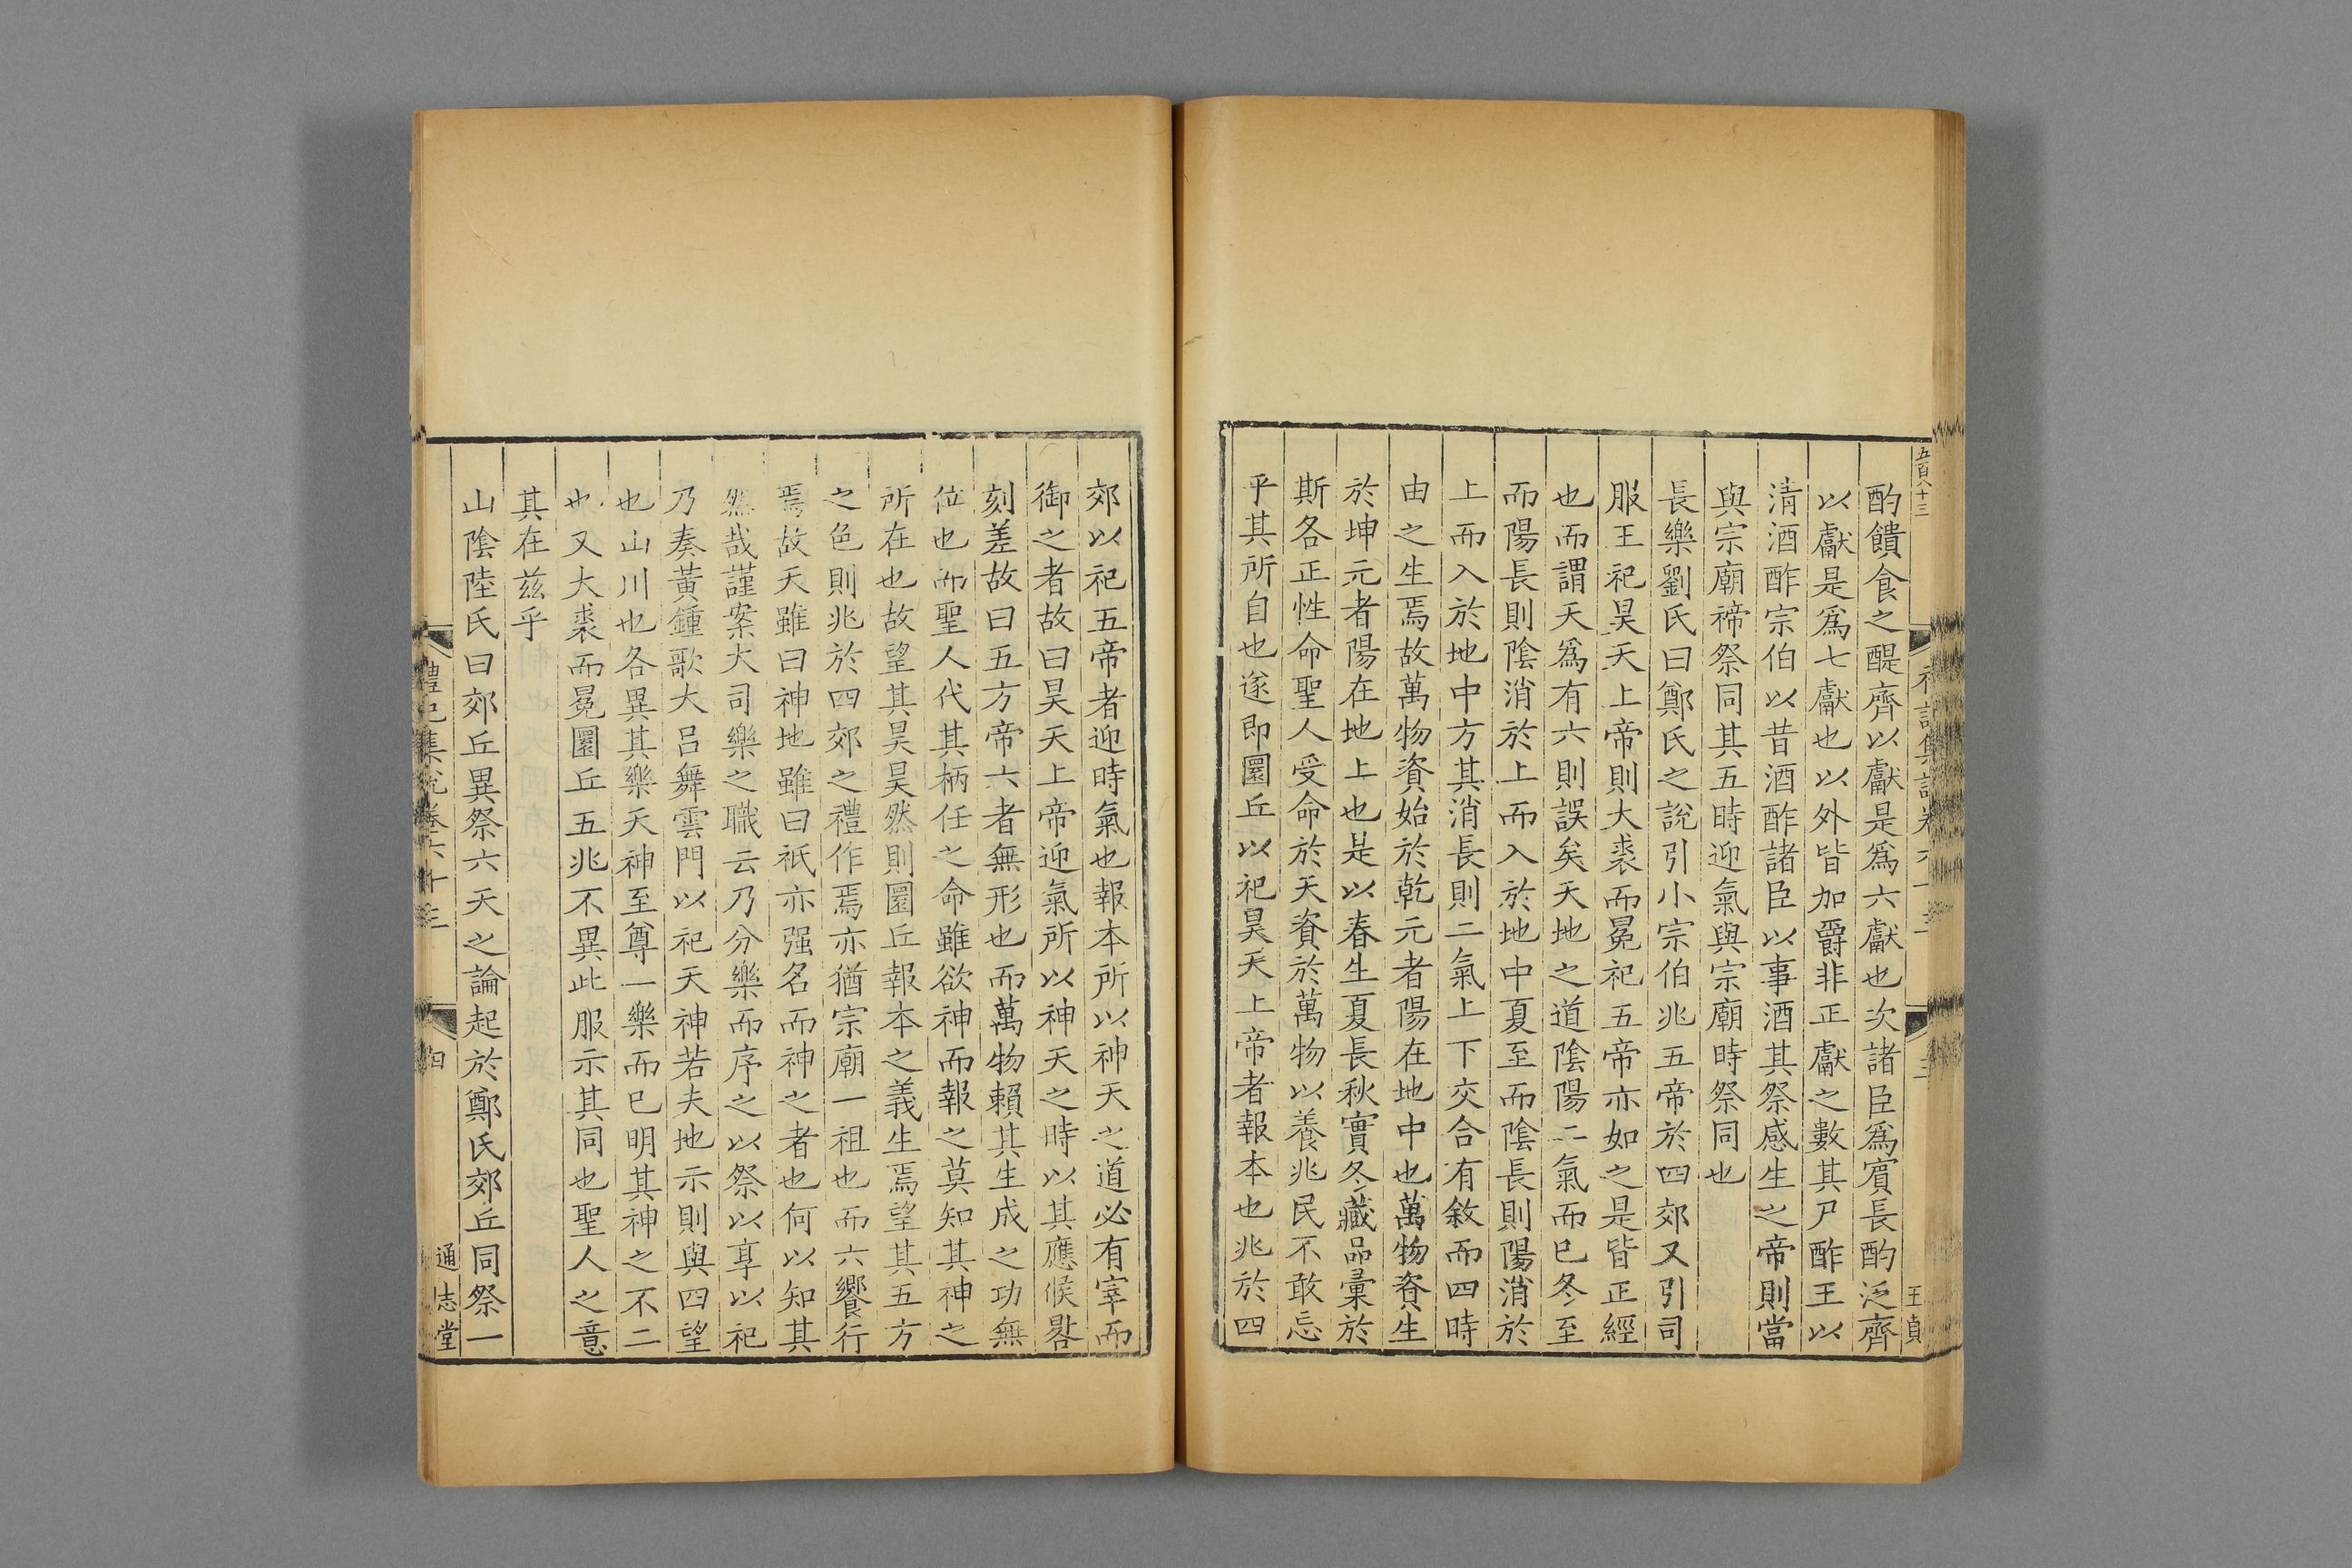 五百八十三
王貞
酌饋食之醍齊以獻是爲六獻也次諸臣爲賓長酌泛齊
以獻是爲七獻也以外皆加爵非正獻之數其尸酢王以
清酒酢宗伯以昔酒酢諸臣以事酒其祭感生之帝則當
與宗廟禘祭同其五時迎氣與宗廟時祭同也
長樂劉氏曰鄭氏之說引小宗伯兆五帝於四郊又引司
服王祀昊天上帝則大裘而冕祀五帝亦如之是皆正經
也而謂天爲有六則誤矣天地之道陰陽二氣而已冬至
而陽長則陰消於上而入於地中夏至而陰長則陽消於
上而入於地中方其消長則二氣上下交合有敘而四時
由之生焉故萬物資始於乾元者陽在地中也萬物資生
於坤元者陽在地上也是以春生夏長秋實冬藏品彙於
斯各正性命聖人受命於天資於萬物以養兆民不敢忘
乎其所自也遂即圜丘以祀昊天上帝者報本也兆於四
郊以祀五帝者迎時氣也報本所以神天之道必有宰而
御之者故曰昊天上帝迎氣所以神天之時以其應候晷
刻差故曰五方帝六者無形也而萬物賴其生成之功無
位也而聖人代其柄任之命雖欲神而報之莫知其神之
所在也故望其昊昊然則圜丘報本之義生焉望其五方
之色則兆於四郊之禮作焉亦猶宗廟一祖也而六饗行
焉故天雖曰神地雖曰祇亦强名而神之者也何以知其
然哉謹案大司樂之職云乃分樂而序之以祭以享以祀
乃奏黃鍾歌大呂舞雲門以祀天神若夫地示則與四望
也山川也各異其樂天神至尊一樂而已明其神之不二
也又大裘而冕圜丘五兆不異此服示其同也聖人之意
其在兹乎
山陰陸氏曰郊丘異祭六天之論起於鄭氏郊丘同祭一
禮記集說卷六十三
四
通志堂